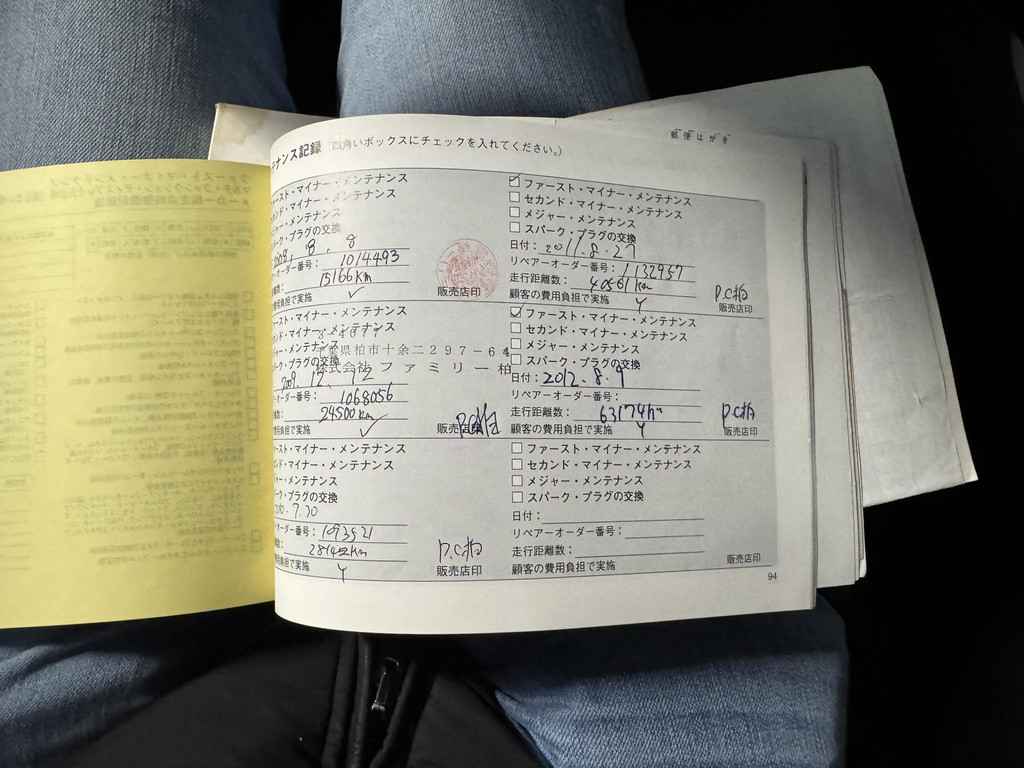 郵便はがき
テナンス記録 (四角いボックスにチェックを入れてください。)
ァースト・マイナー・メンテナンス
カンド・マイナー・メンテナンス
ジャー・メンテナンス
パーク・プラグの交換
2008. 8. 8
オーダー番号： 1014493
15166km
費用負担で実施 ✓
販売店印
ァースト・マイナー・メンテナンス
ンド・マイナー・メンテナンス
ャー・メンテナンス
ーク・プラグの交換
千葉県柏市十余二297-64
株式会社ファミリー柏
2009. 12. 12
オーダー番号： 1068056
24500km
費用負担で実施 ✓
販売店印
P.C柏
ァースト・マイナー・メンテナンス
カンド・マイナー・メンテナンス
ャー・メンテナンス
ーク・プラグの交換
7.30
オーダー番号： 1093521
費用負担で実施 Y
P.C柏
販売店印
ファースト・マイナー・メンテナンス
セカンド・マイナー・メンテナンス
メジャー・メンテナンス
スパーク・プラグの交換
日付： 2011.8.27
リペアーオーダー番号： 1132957
走行距離数： 40561km
顧客の費用負担で実施 Y
P.C柏
販売店印
ファースト・マイナー・メンテナンス
セカンド・マイナー・メンテナンス
メジャー・メンテナンス
スパーク・プラグの交換
日付： 2012.8.9
リペアーオーダー番号：
走行距離数： 63174km
顧客の費用負担で実施 Y
P.C柏
販売店印
ファースト・マイナー・メンテナンス
セカンド・マイナー・メンテナンス
メジャー・メンテナンス
スパーク・プラグの交換
日付：
リペアーオーダー番号：
走行距離数：
顧客の費用負担で実施
販売店印
94